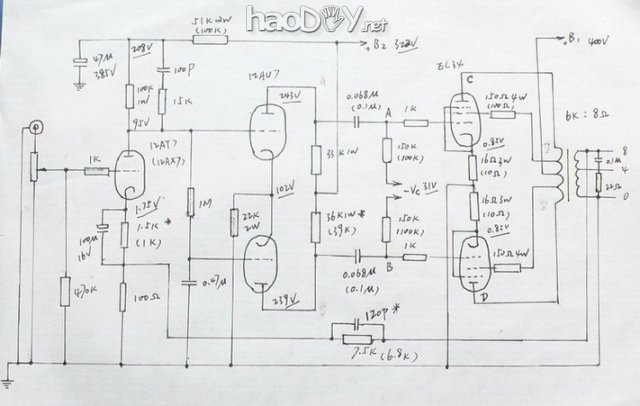 haoDIY.net
51K 2W
(100K)
+B2 322V
+B1 400V
47M
385V
208V
100P
12AU7
243V
A
EL34
C
100K
1W
15K
0.068M
(0.1M)
A
1K
150Ω 4W
(100Ω)
6K : 8Ω
95V
12AT7
(12AX7)
1K
33K 1W
150K
(100K)
0.85V
16Ω 3W
(10Ω)
8
0.1M
4
22Ω
0
102V
-Vc 31V
1.75V
1.5K *
(1K)
1M
22K
2W
36K 1W *
(39K)
150K
(100K)
16Ω 3W
(10Ω)
0.85V
100M
16V
B
0.068M
(0.1M)
B
1K
150Ω 4W
470K
100Ω
0.47M
239V
D
120P *
7.5K (6.8K)